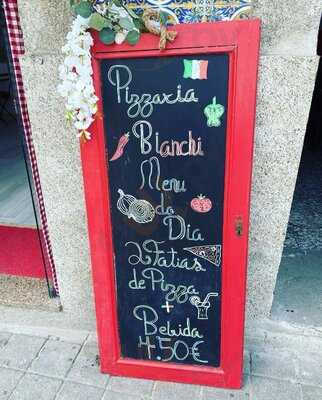 Pizzaria
Bianchi
Menu
do
Dia
2 Fatias
de Pizza
+
Bebida
4.50€